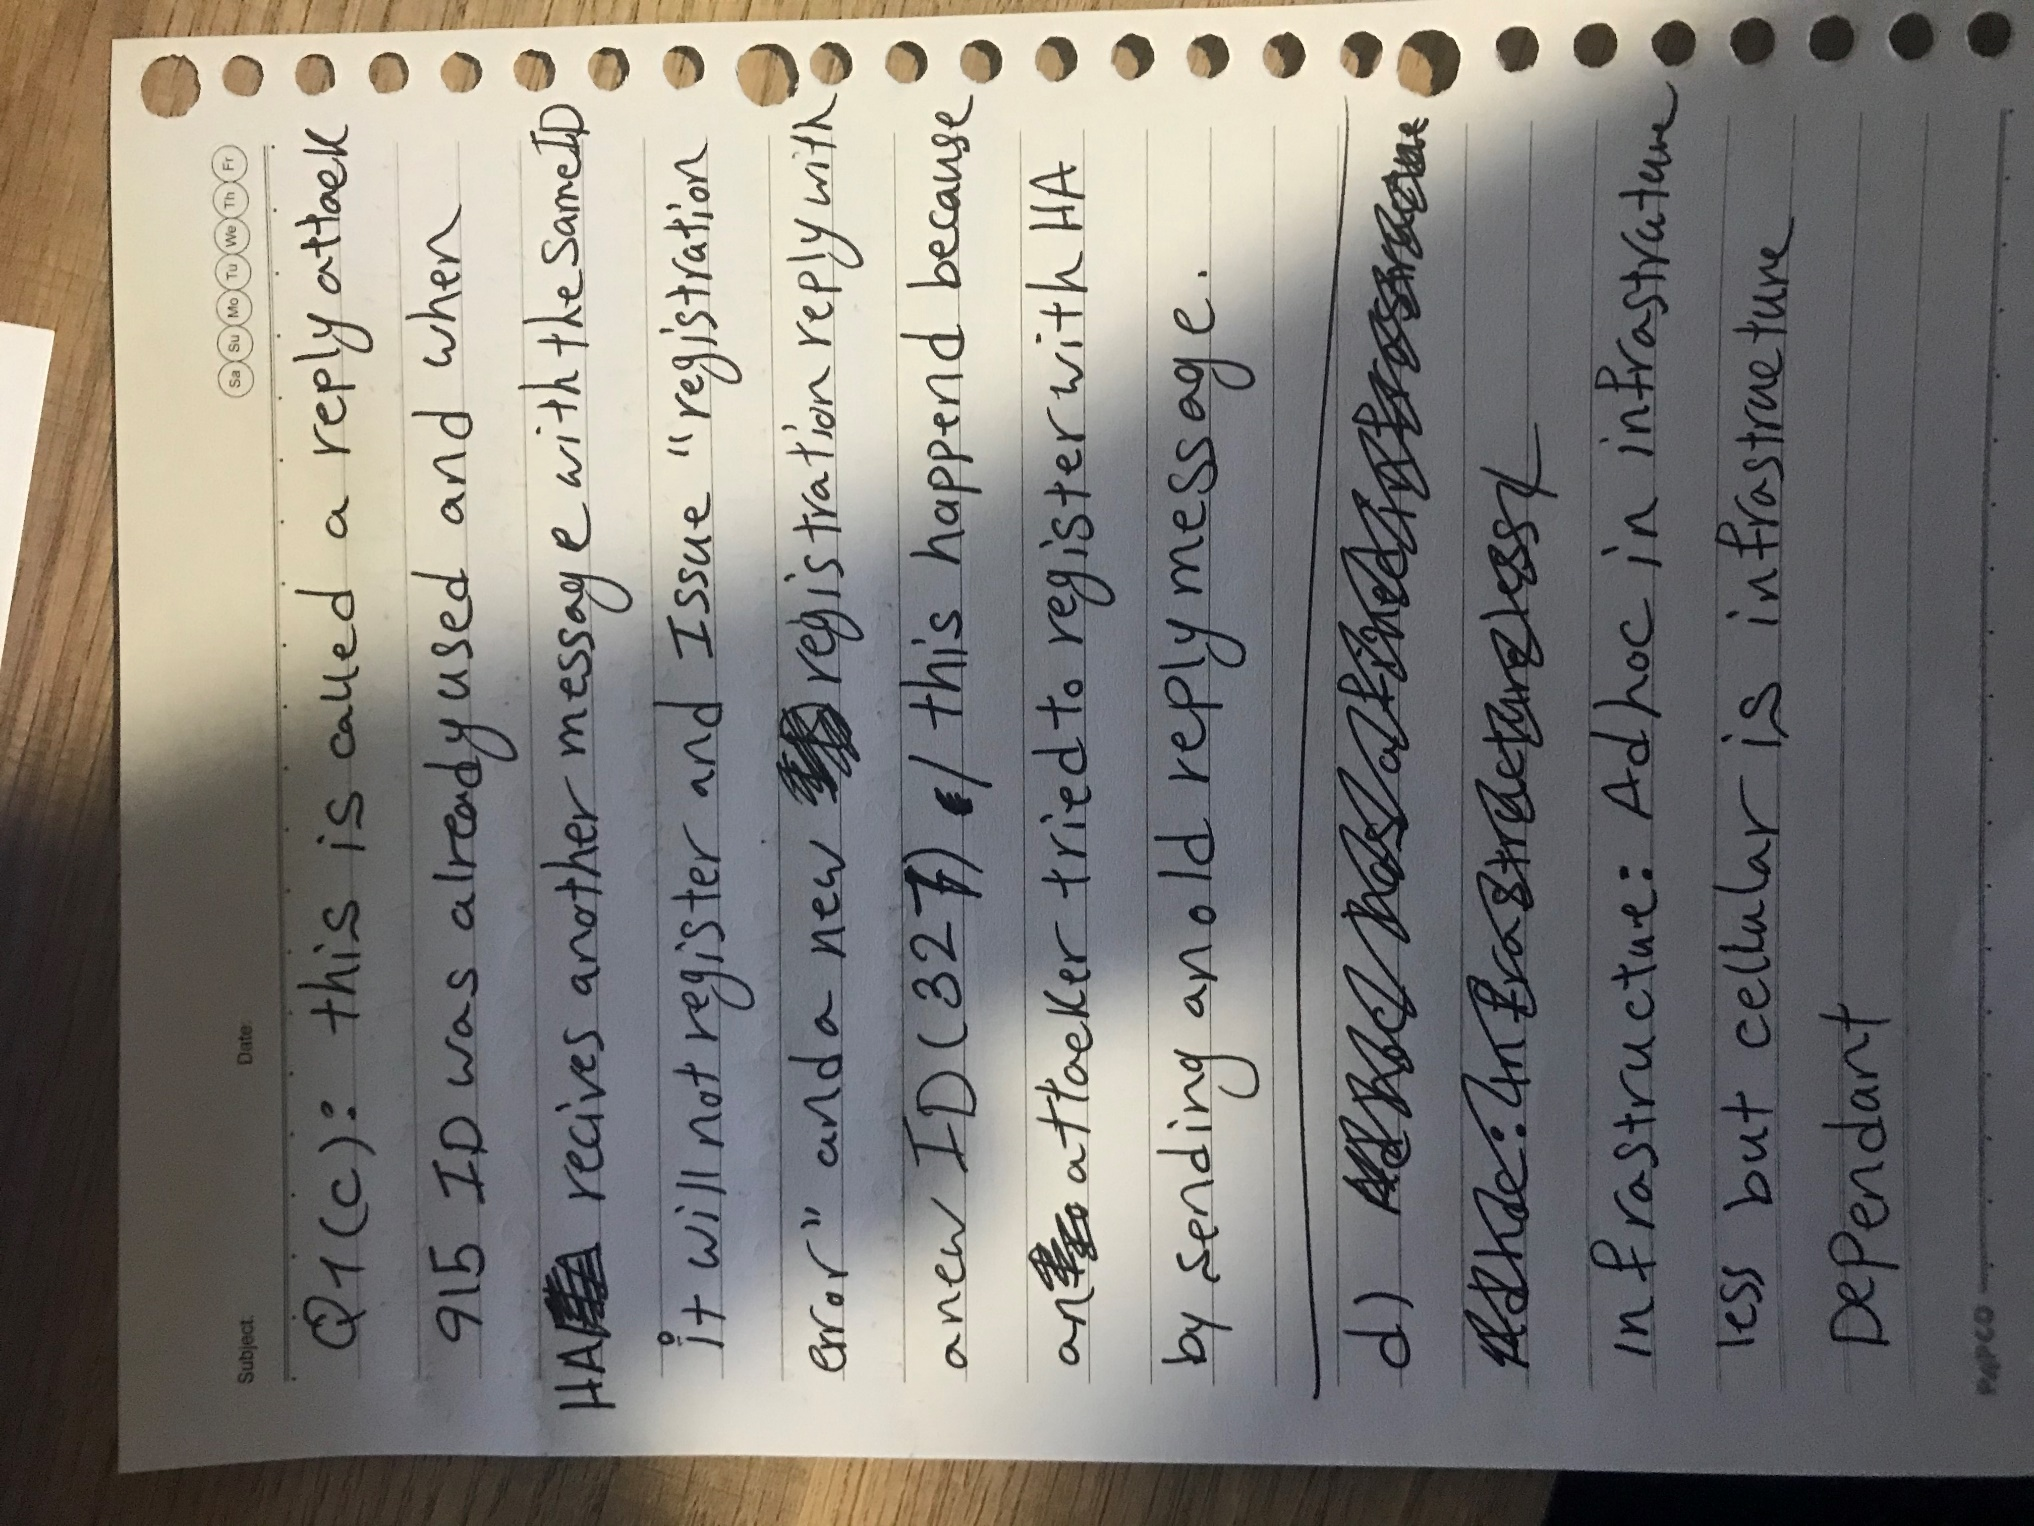 Subject: Date: Sa Su Mo Tu We Th Fr
Q1(c): this is called a reply attack
915 ID was already used and when
HA recives another message with the same ID
it will not register and Issue "registration
error" and a new registration reply with
a new ID (327) / this happend because
an attacker tried to register with HA
by sending an old reply message.
d)
Infrastructure: Adhoc in infrastrature
less but cellular is infrastructure
Dependant
PAPCO